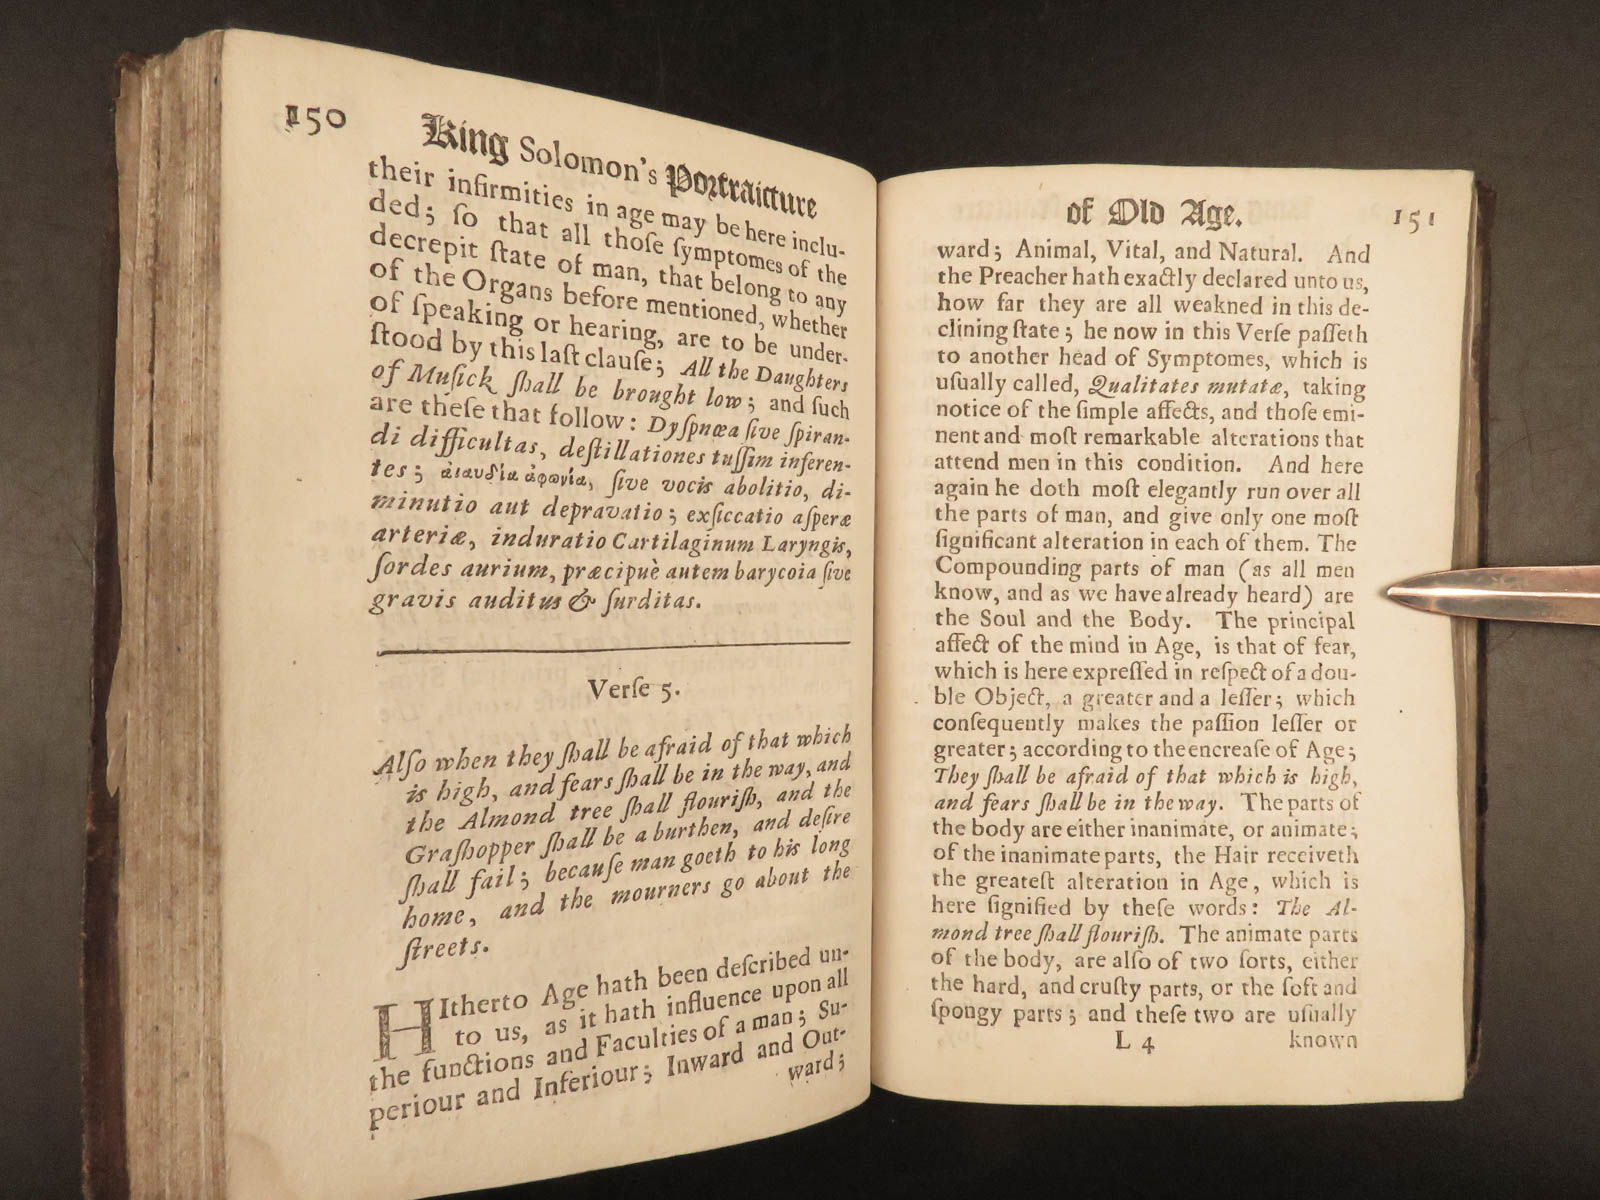 150
King Solomon's Portraicture
their infirmities in age may be here inclu-
ded; ſo that all thoſe ſymptomes of the
decrepit ſtate of man, that belong to any
of the Organs before mentioned, whether
of ſpeaking or hearing, are to be under-
ſtood by this laſt clauſe; All the Daughters
of Muſick ſhall be brought low; and ſuch
are theſe that follow: Dyſpnœa ſive ſpiran-
di difficultas, deſtillationes tuſſim inferen-
tes; ἀφωνία, ſive vocis abolitio, di-
minutio aut depravatio; exſiccatio aſperæ
arteriæ, induratio Cartilaginum Laryngis,
ſordes aurium, præcipuè autem barycoia ſive
gravis auditus & ſurditas.
Verſe 5.
Alſo when they ſhall be afraid of that which
is high, and fears ſhall be in the way, and
the Almond tree ſhall flouriſh, and the
Graſhopper ſhall be a burthen, and deſire
ſhall fail; becauſe man goeth to his long
home, and the mourners go about the
ſtreets.
HItherto Age hath been deſcribed un-
to us, as it hath influence upon all
the functions and Faculties of a man; Su-
periour and Inferiour; Inward and Out-
ward;
of Old Age.
151
ward; Animal, Vital, and Natural. And
the Preacher hath exactly declared unto us,
how far they are all weakned in this de-
clining ſtate; he now in this Verſe paſſeth
to another head of Symptomes, which is
uſually called, Qualitates mutatæ, taking
notice of the ſimple affects, and thoſe emi-
nent and moſt remarkable alterations that
attend men in this condition. And here
again he doth moſt elegantly run over all
the parts of man, and give only one moſt
ſignificant alteration in each of them. The
Compounding parts of man (as all men
know, and as we have already heard) are
the Soul and the Body. The principal
affect of the mind in Age, is that of fear,
which is here expreſſed in reſpect of a dou-
ble Object, a greater and a leſſer; which
conſequently makes the paſſion leſſer or
greater; according to the encreaſe of Age;
They ſhall be afraid of that which is high,
and fears ſhall be in the way. The parts of
the body are either inanimate, or animate;
of the inanimate parts, the Hair receiveth
the greateſt alteration in Age, which is
here ſignified by theſe words: The Al-
mond tree ſhall flouriſh. The animate parts
of the body, are alſo of two ſorts, either
the hard, and cruſty parts, or the ſoft and
ſpongy parts; and theſe two are uſually
L 4
known